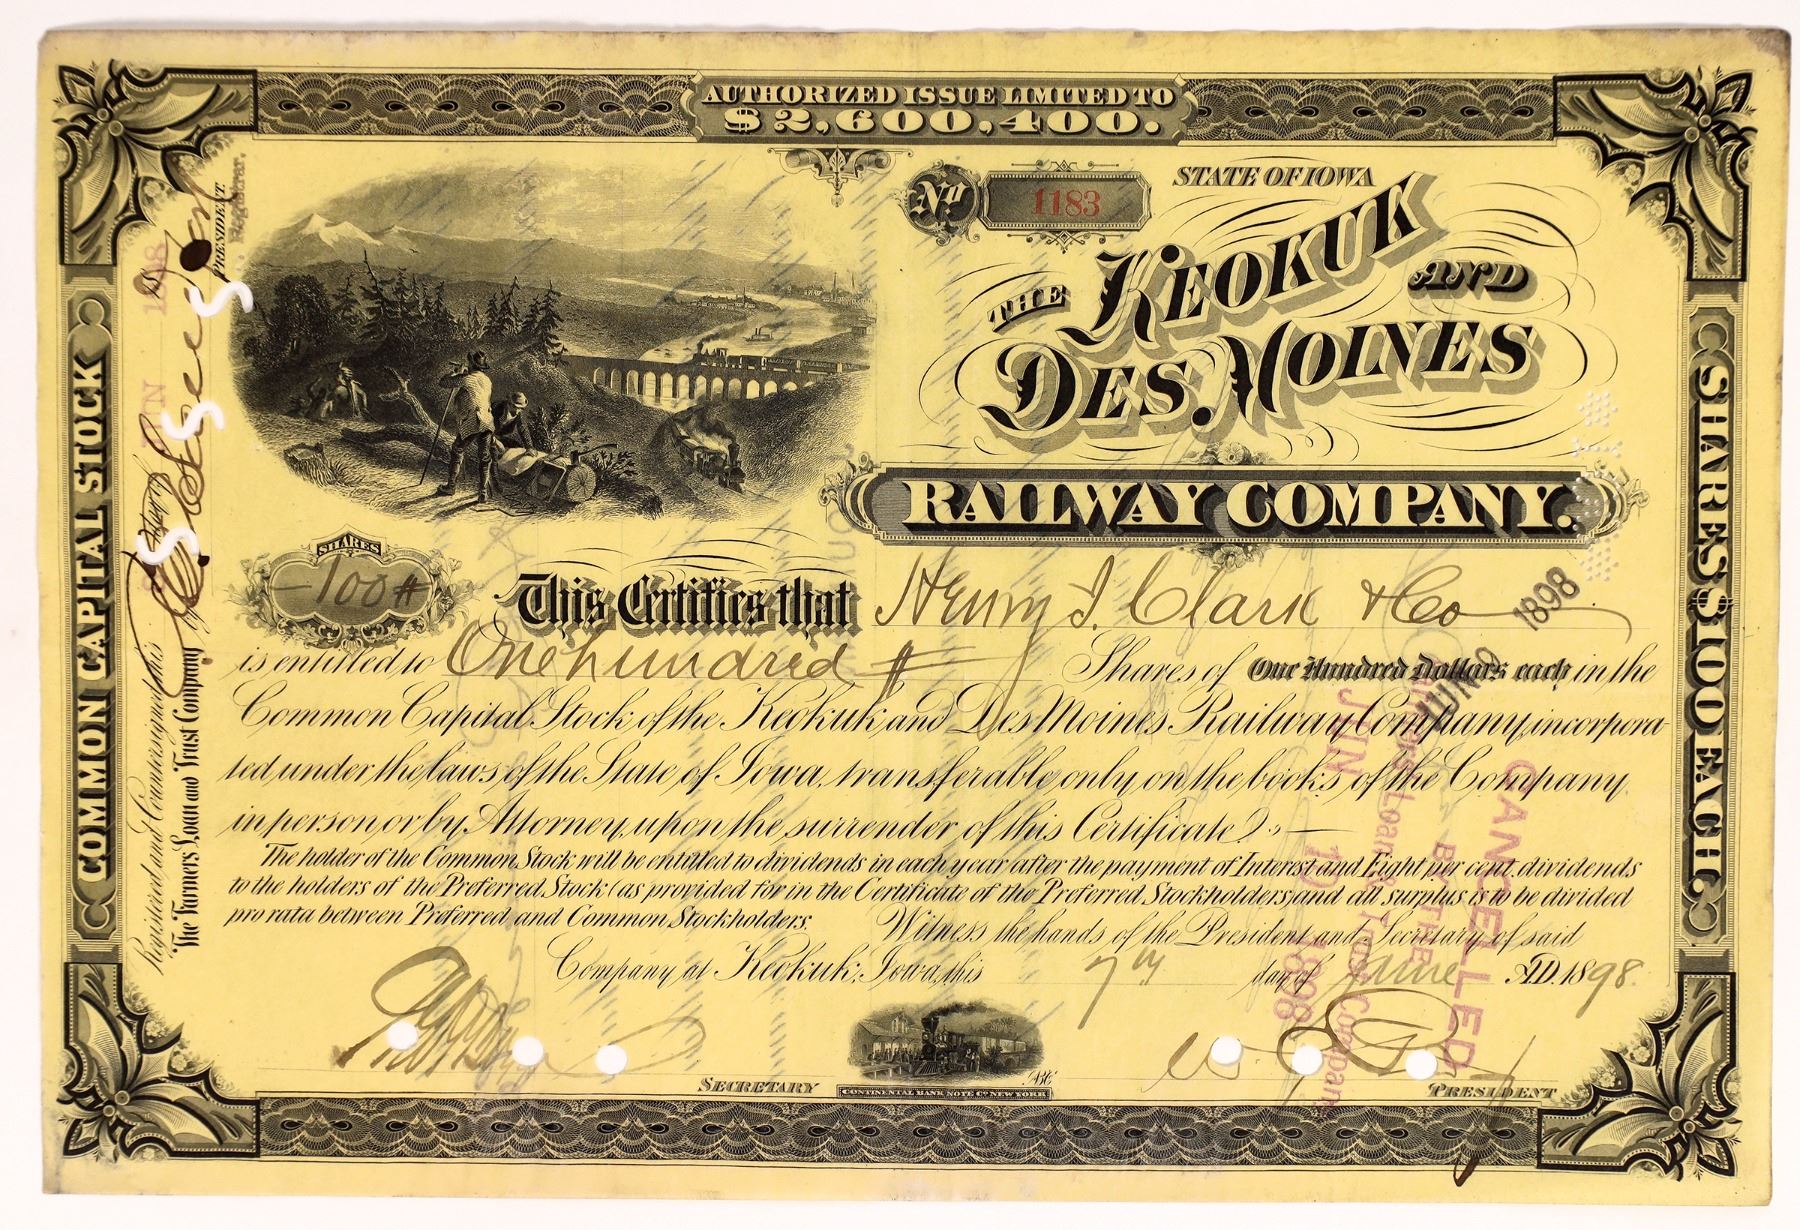 AUTHORIZED ISSUE LIMITED TO
$2,600,400.
No 1183
STATE OF IOWA
THE KEOKUK AND
DES MOINES
RAILWAY COMPANY.
SHARES
100
This Certifies that Henry I. Clark & Co
is entitled to One hundred Shares of One Hundred Dollars each in the
Common Capital Stock of the Keokuk and Des Moines Railway Company, incorpora-
ted under the laws of the State of Iowa, transferable only on the books of the Company,
in person, or by Attorney, upon the surrender of this Certificate.
The holder of the Common Stock will be entitled to dividends in each year after the payment of Interest and Eight per cent. dividends
to the holders of the Preferred Stock (as provided for in the Certificate of the Preferred Stockholders) and all surplus is to be divided
pro rata between Preferred and Common Stockholders. Witness the hands of the President and Secretary of said
Company at Keokuk, Iowa, this 7th day of June A.D. 1898.
SECRETARY
PRESIDENT
CONTINENTAL BANK NOTE Co NEW YORK
COMMON CAPITAL STOCK
SHARES 100 EACH
Registered and Countersigned this
The Farmers Loan and Trust Company by
PRESIDENT
Registrar.
1898
CANCELLED
BY THE
Farmers Loan & Trust Company
JUN 10 1898